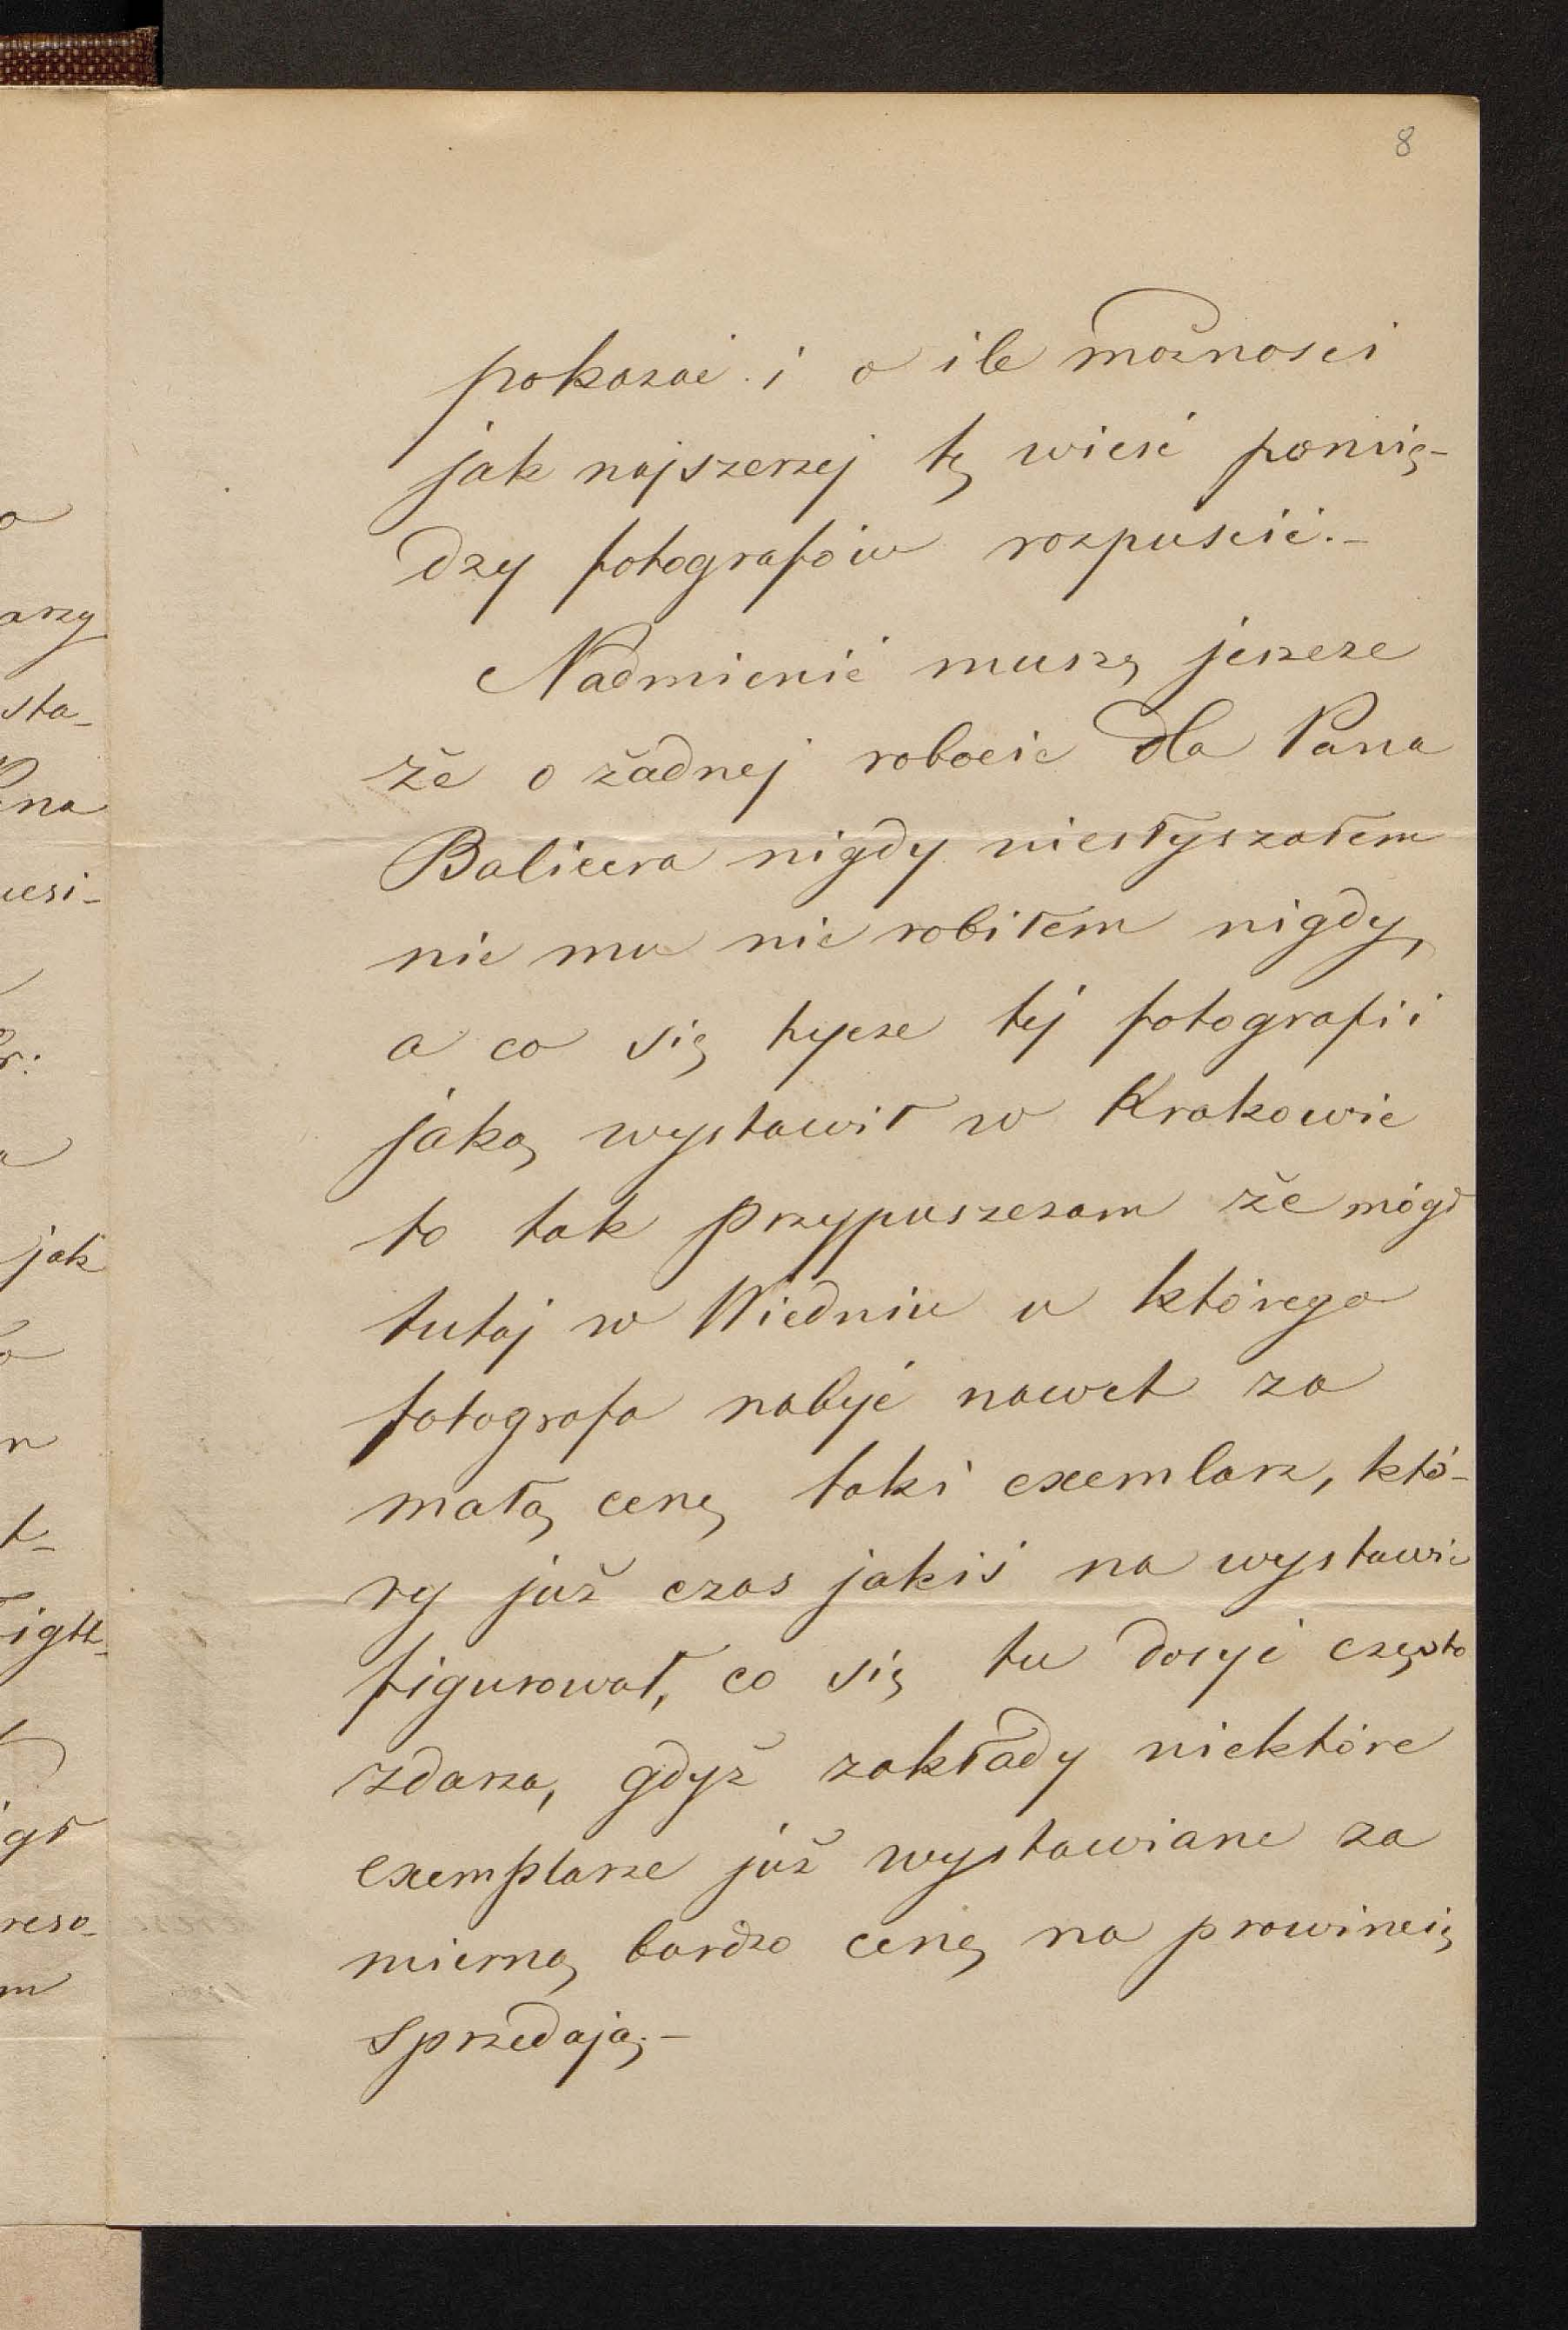 8
pokazać i o ile możności
jak najszerzej tę wieść pomię-
dzy fotografów rozpuścić.-
Nadmienić muszę jeszcze
że o żadnej robocie dla Pana
Balicera nigdy niesłyszałem
nic mu nie robiłem nigdy,
a co się tycze tej fotografii
jaką wystawił w Krakowie
to tak przypuszczam że mógł
tutaj w Wiedniu u którego
fotografa nabyć nawet za
małą cenę taki exemlarz, któ-
ry już czas jakiś na wystawie
figurował, co się tu dosyć często
zdarza, gdyż zakłady niektóre
exemplarze już wystawiane za
mierną bardzo cenę na prowincię
sprzedają.-